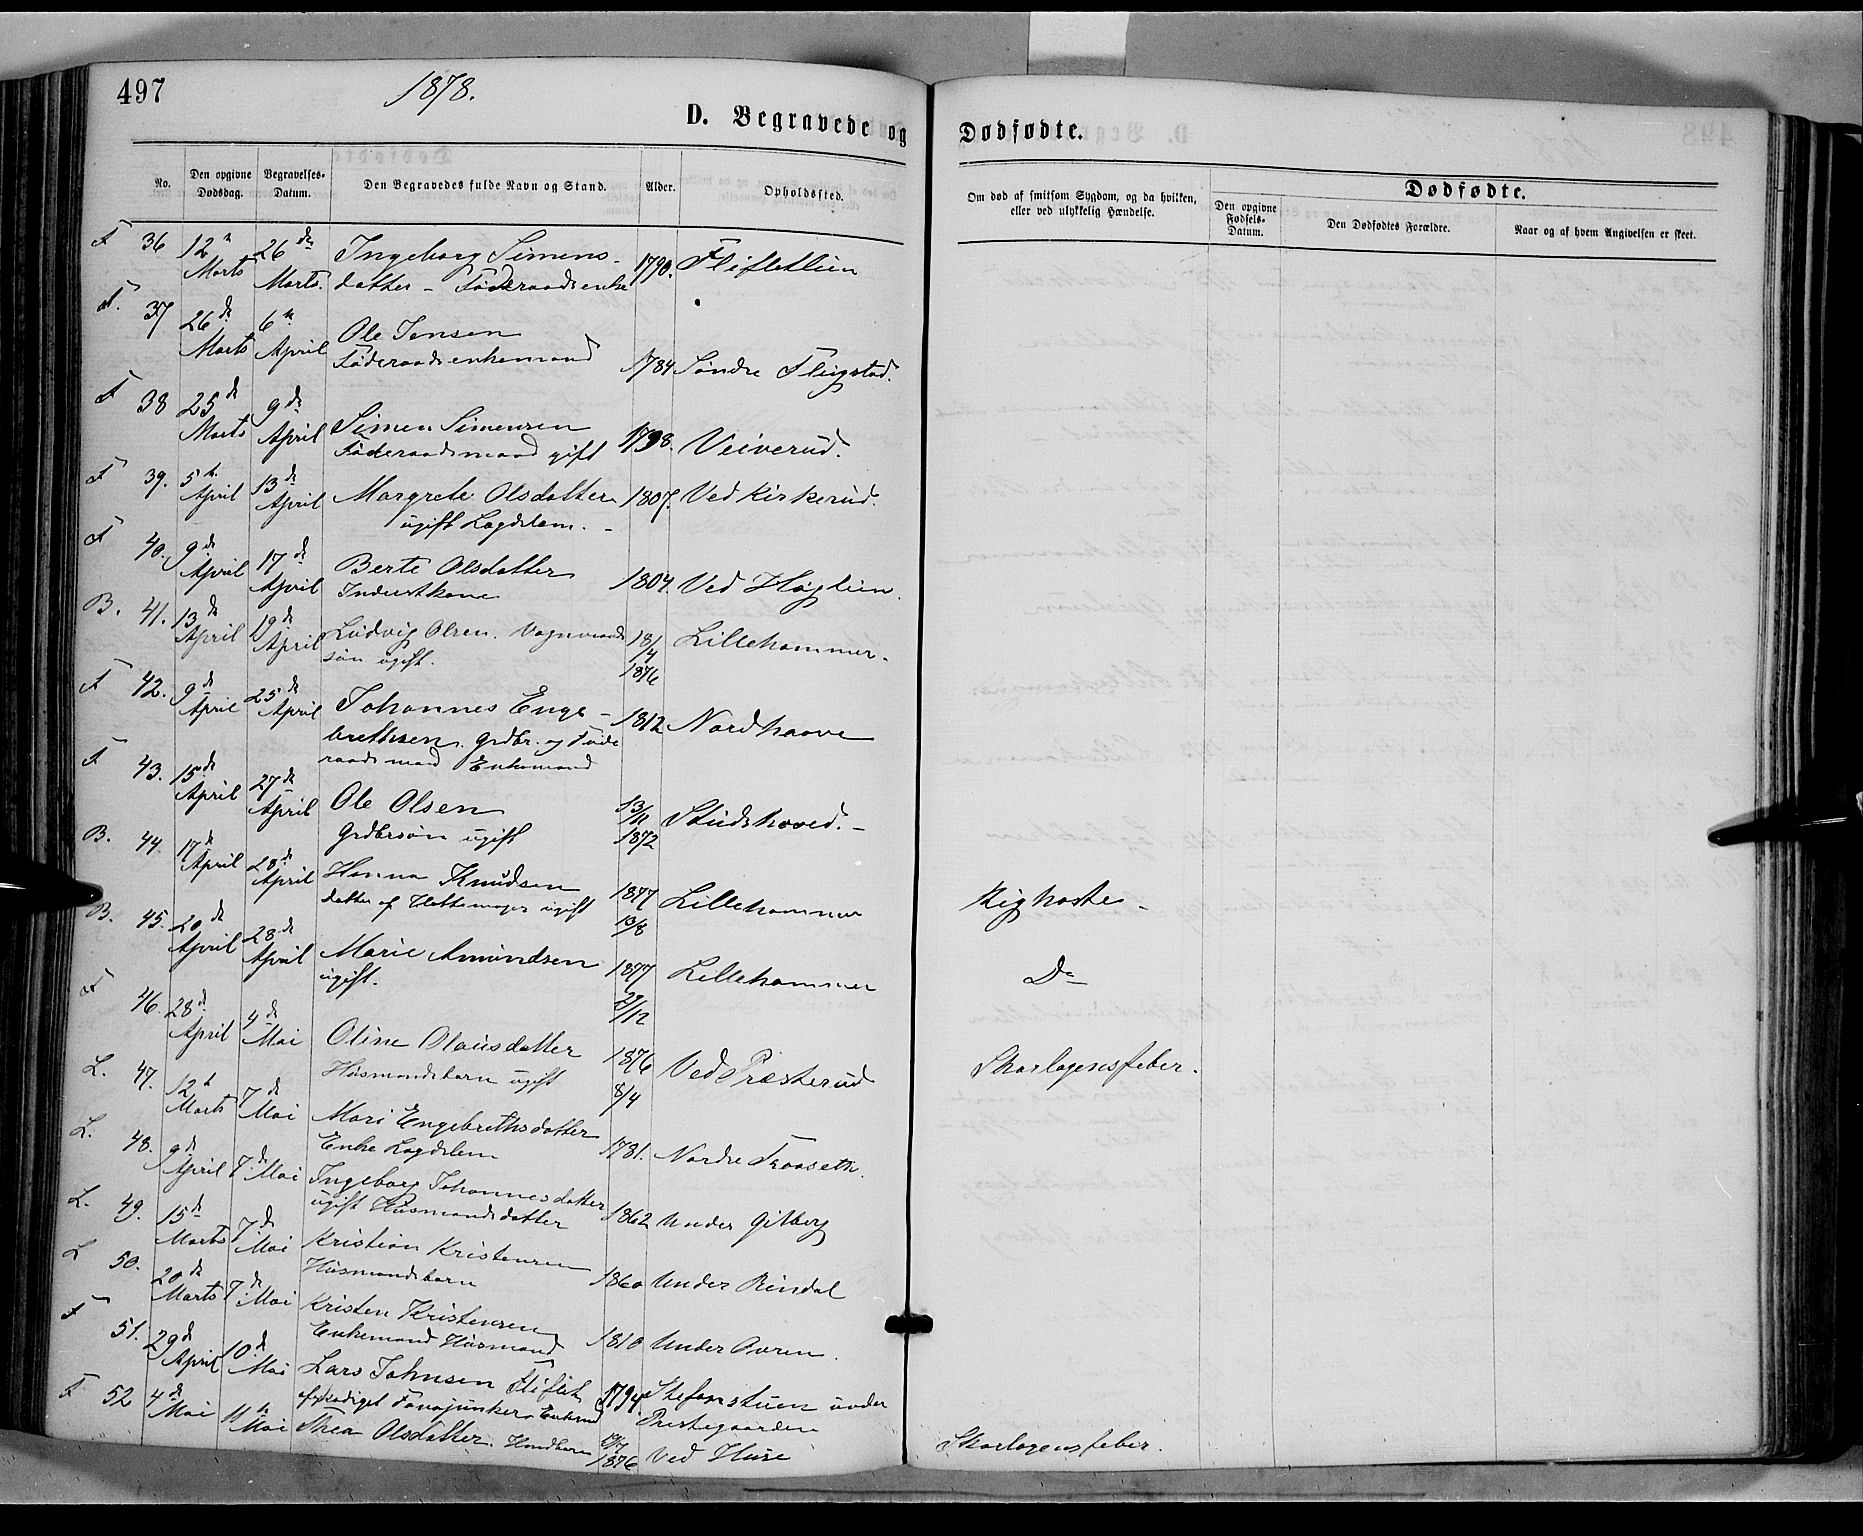 497
1878.
D. Begravede og Dødfødte.
No.
Den opgivne Dødsdag.
Begravelses-Datum.
Den Begravedes fulde Navn og Stand.
Alder.
Opholdssted.
Om død af smitsom Sygdom, og da hvilken, eller ved ulykkelig Hændelse.
Dødfødte.
Den opgivne Fødsels-Datum.
Den Dødfødtes Forældre.
Naar og af hvem Angivelsen er skeet.
F 36 12te 26de Ingeborg Simens- 1790. Flifletlien
Marts Marts. datter - Føderaadsenke
F. 37 26de 6te Ole Jensen
Marts April Føderaadsenkemand 1784 Søndre Flugstad.
F 38 25de 9de Simen Simensen 1798. Veiverud.
Marts April Føderaadsmand gift
F 39. 5te 13de Margrete Olsdatter 1807. Ved Kirkerud.
April April ugift Lægdslem. -
F 40. 9de 17de Berte Olsdatter 1804. Ved Høglien.
April April Inderstkone
B. 41. 13de 19de Ludvig Olsen. Vognmands 18/4 Lillehammer.
April April søn ugift. 1876
F 42. 9de 25de Johannes Enge- 1812 Nordhaave
April April brethsen. Grdbr. og Føde
raadsmand Enkemand
F 43. 15de 27de Ole Olsen 13/11 Studshoved. -
April April Grdbrsøn ugift 1872
B. 44. 17de 28de Hanna Knudsen 1877 Lillehammer Kighoste -
April April datter af Hattemager ugift 13/8
B. 45. 20de 28de Marie Amundsen 1877 Lillehammer Do
April April ugift. 29/12
F 46. 28de 4de Oline Olausdatter 1876 Ved Præsterud Skarlagensfeber.
April Mai Husmandsbarn ugift 8/4
L. 47. 12te 7de Mari Engebrethsdatter
Marts Mai Enke Lægdslem 1781. Nordre Traaseth.
L. 48. 9de 7de Ingeborg Johannesdatter
April Mai ugift Husmandsdatter 1862 Under Gilberg
L. 49. 15de 7de Kristian Kristensen
Marts Mai Husmandsbarn 1860 Under Rindal
L 50. 20de 7de Kristen Kristensen
Marts Mai Enkemand Husmand 1810 Under Auren.
F 51. 29de 10de Lars Johnsen Fliflet 1794 Stefanstuen under
April Mai afskediget Fanejunker Enkmd Prestegaarden
F 52 4de 11te Thea Olsdatter. Hmdbarn 1876 Ved Huse Skarlagensfeber.
Mai Mai